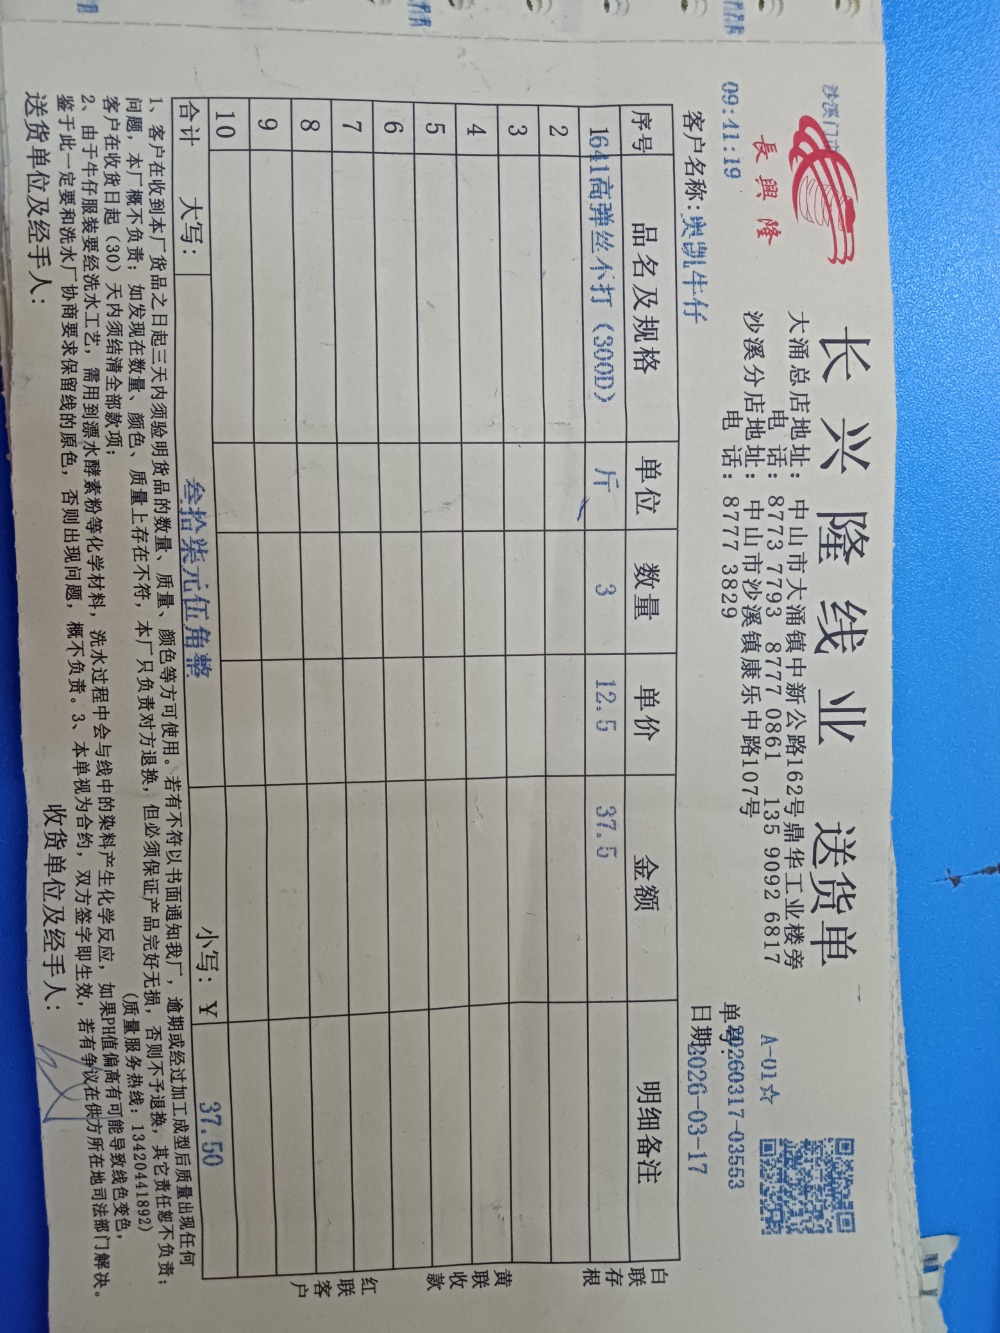 沙溪门市
長興隆
09:41:19
长兴隆线业 送货单
大涌总店地址：中山市大涌镇中新公路162号鼎华工业楼旁
电 话：8773 7793 8777 0861 135 9092 6817
沙溪分店地址：中山市沙溪镇康乐中路107号
电 话：8777 3829
A-01☆
单号:20260317-03553
客户名称:奥凯牛仔
日期:2026-03-17
序号 品名及规格 单位 数量 单价 金额 明细备注
1 641高弹丝不打（300D） 斤 3 12.5 37.5
2
3
4
5
6
7
8
9
10
合计 大写： 叁拾柒元伍角整 小写：￥ 37.50
白联存根
黄联收款
红联客户
1、客户在收到本厂货品之日起三天内须验明货品的数量、质量、颜色等方可使用。若有不符以书面通知我厂，逾期或经过加工成型后质量出现任何
问题，本厂概不负责；如发现在数量、颜色、质量上存在不符，本厂只负责对方退换，但必须保证产品完好无损，否则不予退换，其它责任恕不负责；
客户在收货日起（30）天内须结清全部款项；
（质量服务热线：13420441892）
2、由于牛仔服装要经洗水工艺，需用到漂水酵素粉等化学材料，洗水过程中会与线中的染料产生化学反应，如果PH值偏高有可能导致线色变色，
鉴于此一定要和洗水厂协商要求保留线的原色，否则出现问题，概不负责。3、本单视为合约，双方签字即生效，若有争议在供方所在地司法部门解决。
送货单位及经手人：
收货单位及经手人：